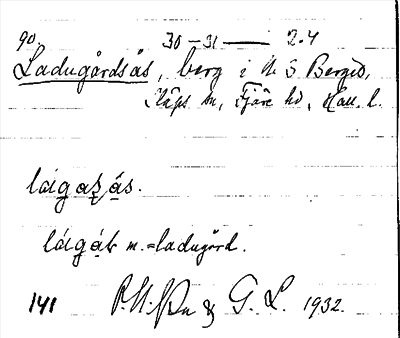 90. 30-31 — 2.4
Ladugårdsås, berg i N S Berged,
Släps sn, Fjäre hd, Hall. l.
lágaʂ ás.
lágáʈ n. = ladugård.
141 P. N. & G. L. 1932.